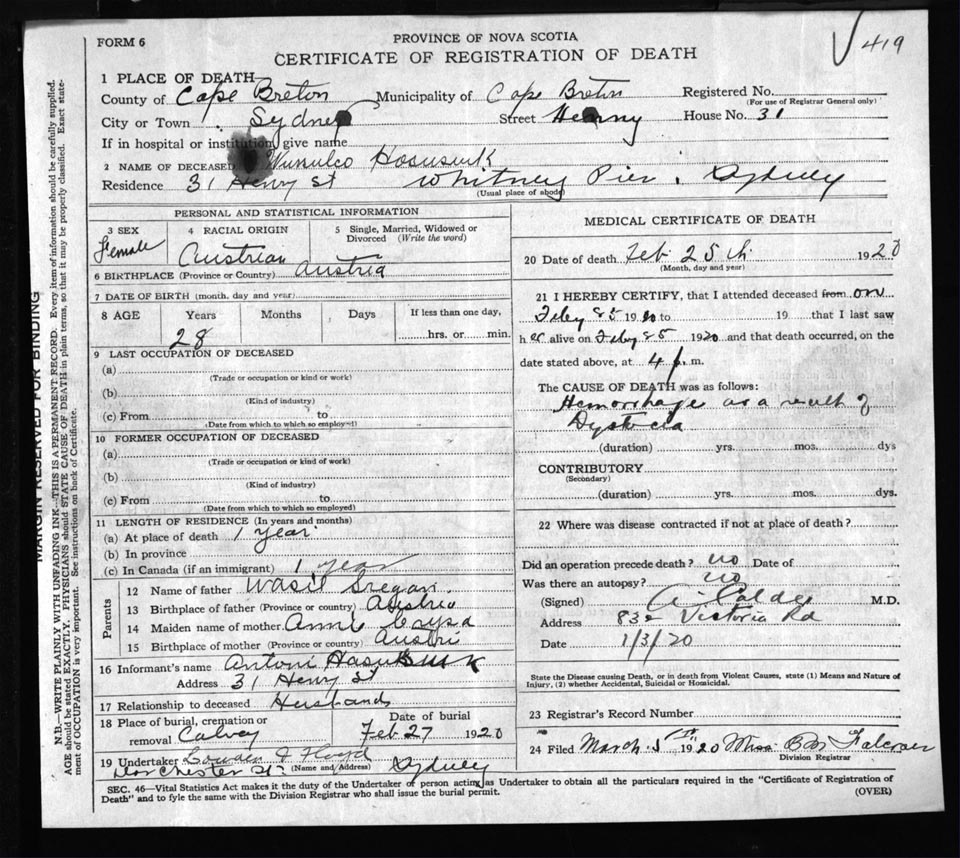 419
FORM 6
PROVINCE OF NOVA SCOTIA
CERTIFICATE OF REGISTRATION OF DEATH
1 PLACE OF DEATH
County of Cape Breton Municipality of Cape Breton Registered No.
(For use of Registrar General only)
City or Town Sydney Street Henry House No. 31
If in hospital or institution, give name
2 NAME OF DECEASED
Residence 31 Henry St Whitney Pier. Sydney
(Usual place of abode)
PERSONAL AND STATISTICAL INFORMATION
3 SEX 4 RACIAL ORIGIN 5 Single, Married, Widowed or Divorced (Write the word)
Female Austrian
6 BIRTHPLACE (Province or Country) Austria
7 DATE OF BIRTH (month, day and year)
8 AGE Years Months Days If less than one day,
28 hrs. or min.
9 LAST OCCUPATION OF DECEASED
(a)
(Trade or occupation or kind or work)
(b)
(Kind of industry)
(c) From to
(Date from which to which so employed)
10 FORMER OCCUPATION OF DECEASED
(a)
(Trade or occupation or kind of work)
(b)
(Kind of industry)
(c) From to
(Date from which to which so employed)
11 LENGTH OF RESIDENCE (In years and months)
(a) At place of death 1 year
(b) In province
(c) In Canada (if an immigrant) 1 year
Parents
12 Name of father Wasil
13 Birthplace of father (Province or country) Austria
14 Maiden name of mother Annie
15 Birthplace of mother (Province or country) Austri
16 Informant's name Antoni
Address 31 Henry St
17 Relationship to deceased Husband
18 Place of burial, cremation or removal Date of burial
Feb 27 1920
19 Undertaker Lloyd
(Name and Address)
Dorchester St. Sydney
MEDICAL CERTIFICATE OF DEATH
20 Date of death Feb 25th 1920
(Month, day and year)
21 I HEREBY CERTIFY, that I attended deceased from on
Feby 25 1920 to 19 that I last saw
her alive on Feby 25 1920 and that death occurred, on the
date stated above, at 4 p.m.
The CAUSE OF DEATH was as follows:
Hemorrhage as a result of
Dystocia
(duration) yrs. mos. dys
CONTRIBUTORY
(Secondary)
(duration) yrs. mos. dys.
22 Where was disease contracted if not at place of death?
Did an operation precede death? no Date of
Was there an autopsy? no
(Signed) M.D.
Address Victoria Rd
Date 1/3/20
State the Disease causing Death, or in death from Violent Causes, state (1) Means and Nature of
Injury, (2) whether Accidental, Suicidal or Homicidal.
23 Registrar's Record Number
24 Filed March 1920 Miss
Division Registrar
SEC. 46—Vital Statistics Act makes it the duty of the Undertaker or person acting as Undertaker to obtain all the particulars required in the "Certificate of Registration of
Death" and to fyle the same with the Division Registrar who shall issue the burial permit.
(OVER)
MARGIN RESERVED FOR BINDING
N.B.—WRITE PLAINLY WITH UNFADING INK—THIS IS A PERMANENT RECORD. Every item of information should be carefully supplied.
AGE should be stated EXACTLY. PHYSICIANS should STATE CAUSE OF DEATH in plain terms, so that it may be properly classified. Exact state-
ment of OCCUPATION is very important. See instructions on back of Certificate.